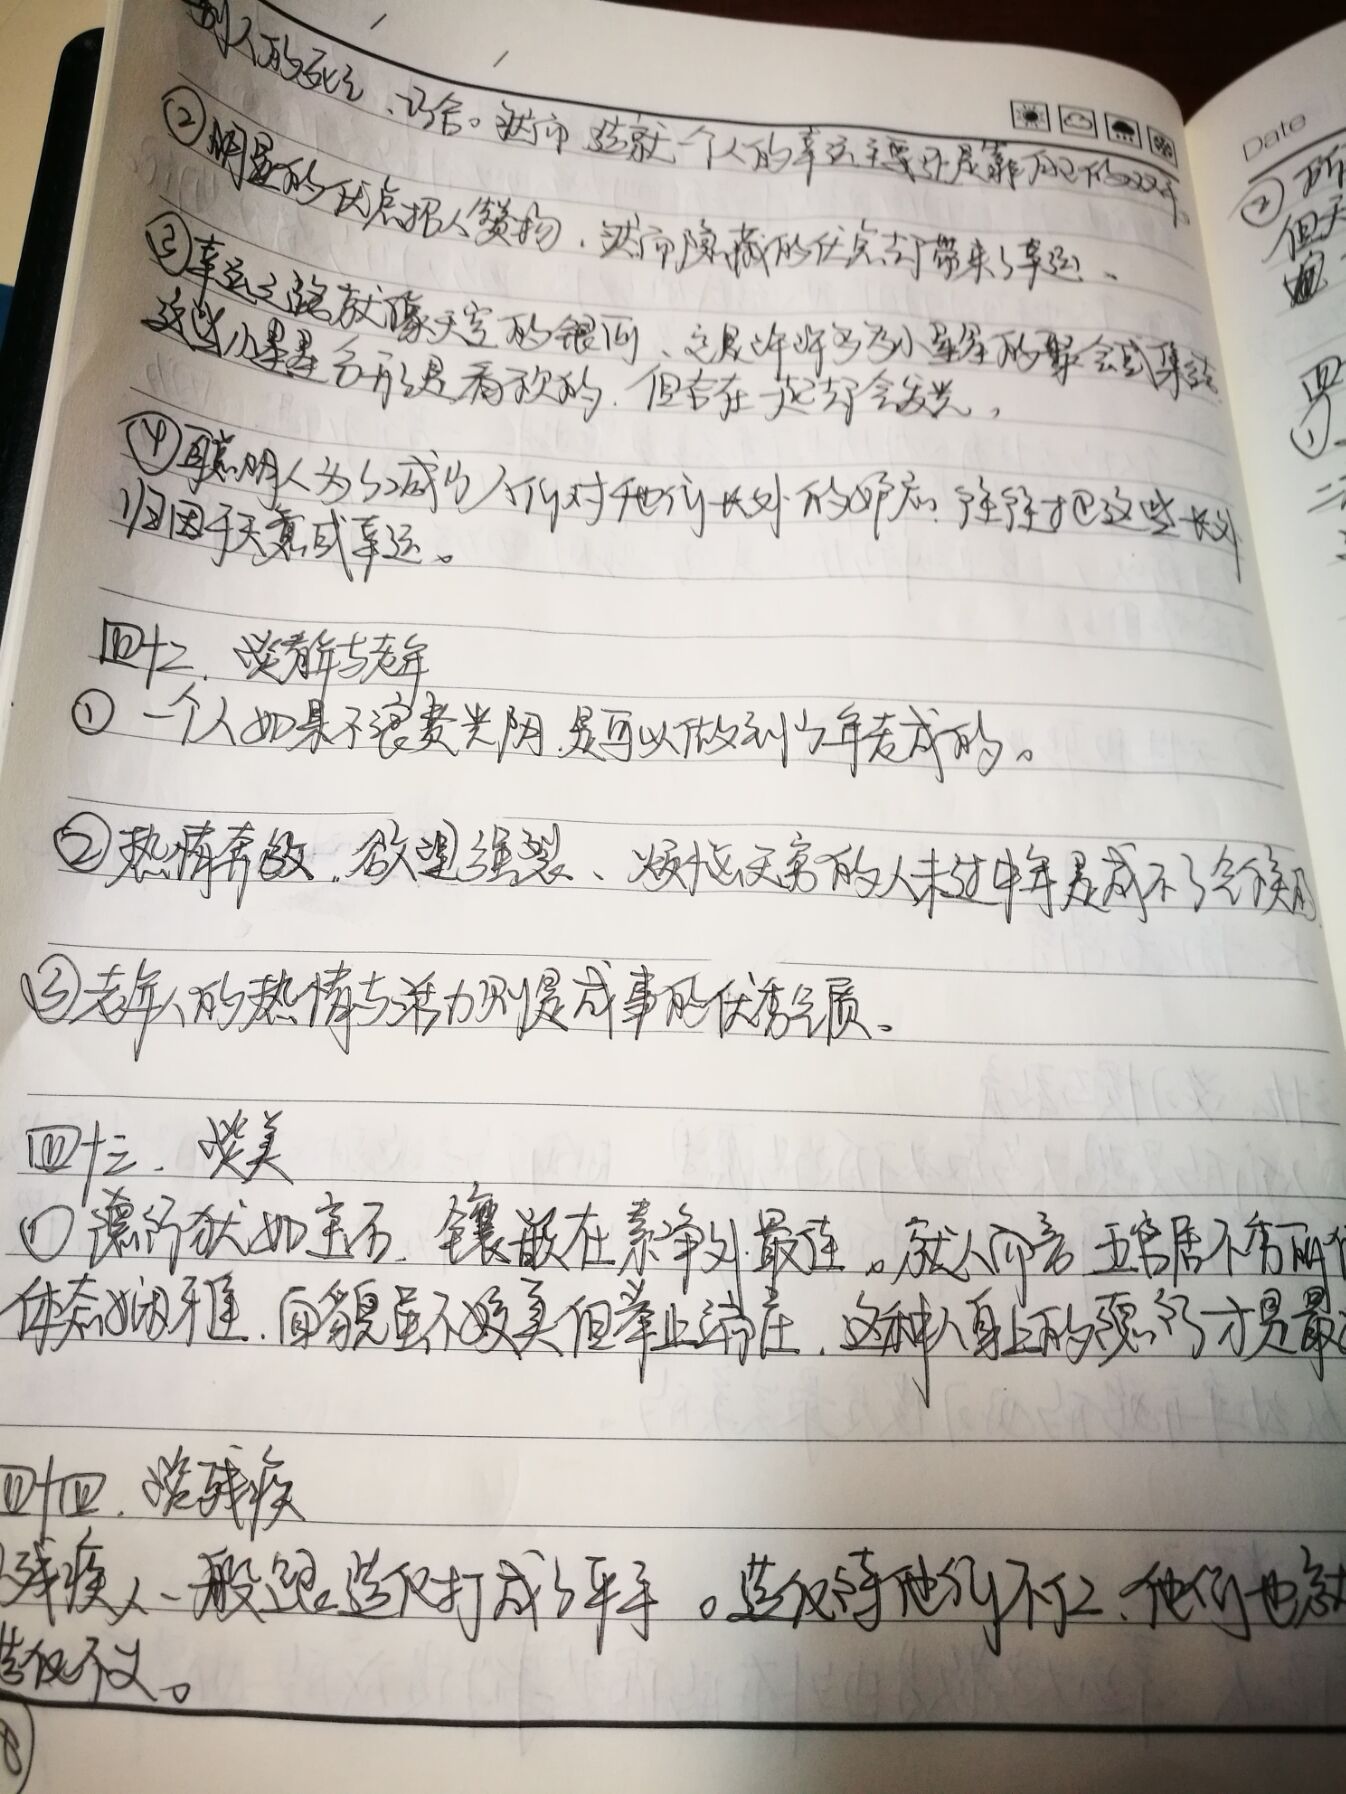 别人的死亡、巧合。然而造就一个人的幸运主要还是靠自己的双手。
②明显的优点招人赞扬，然而隐藏的优点却带来了幸运。
③幸运之路就像天空的银河，它是许许多多小星星的聚会或集结
这些小星星分开是看不的，但合在一起却会发光。
④聪明人为了减少人们对他们长处的妒忌，往往把这些长处
归因于天意或幸运。
四十二、谈青年与老年
① 一个人如果不浪费光阴，是可以做到少年老成的。
②热情奔放、欲望强烈、烦恼无穷的人未过中年是成不了气候的
③老年人的热情与活力则是成事的优秀气质。
四十三、谈美
① 德行犹如宝石，镶嵌在素净处最佳。就人而言 五官居不秀丽但
体态娴雅，面貌虽不姣美但举止端庄，这种人身上的德行才是最
四十四、谈残疾
残疾人一般跟造化打成了平手。造化待他们不仁，他们也就
造化不义。
Date
② 所
但天
四
①
8